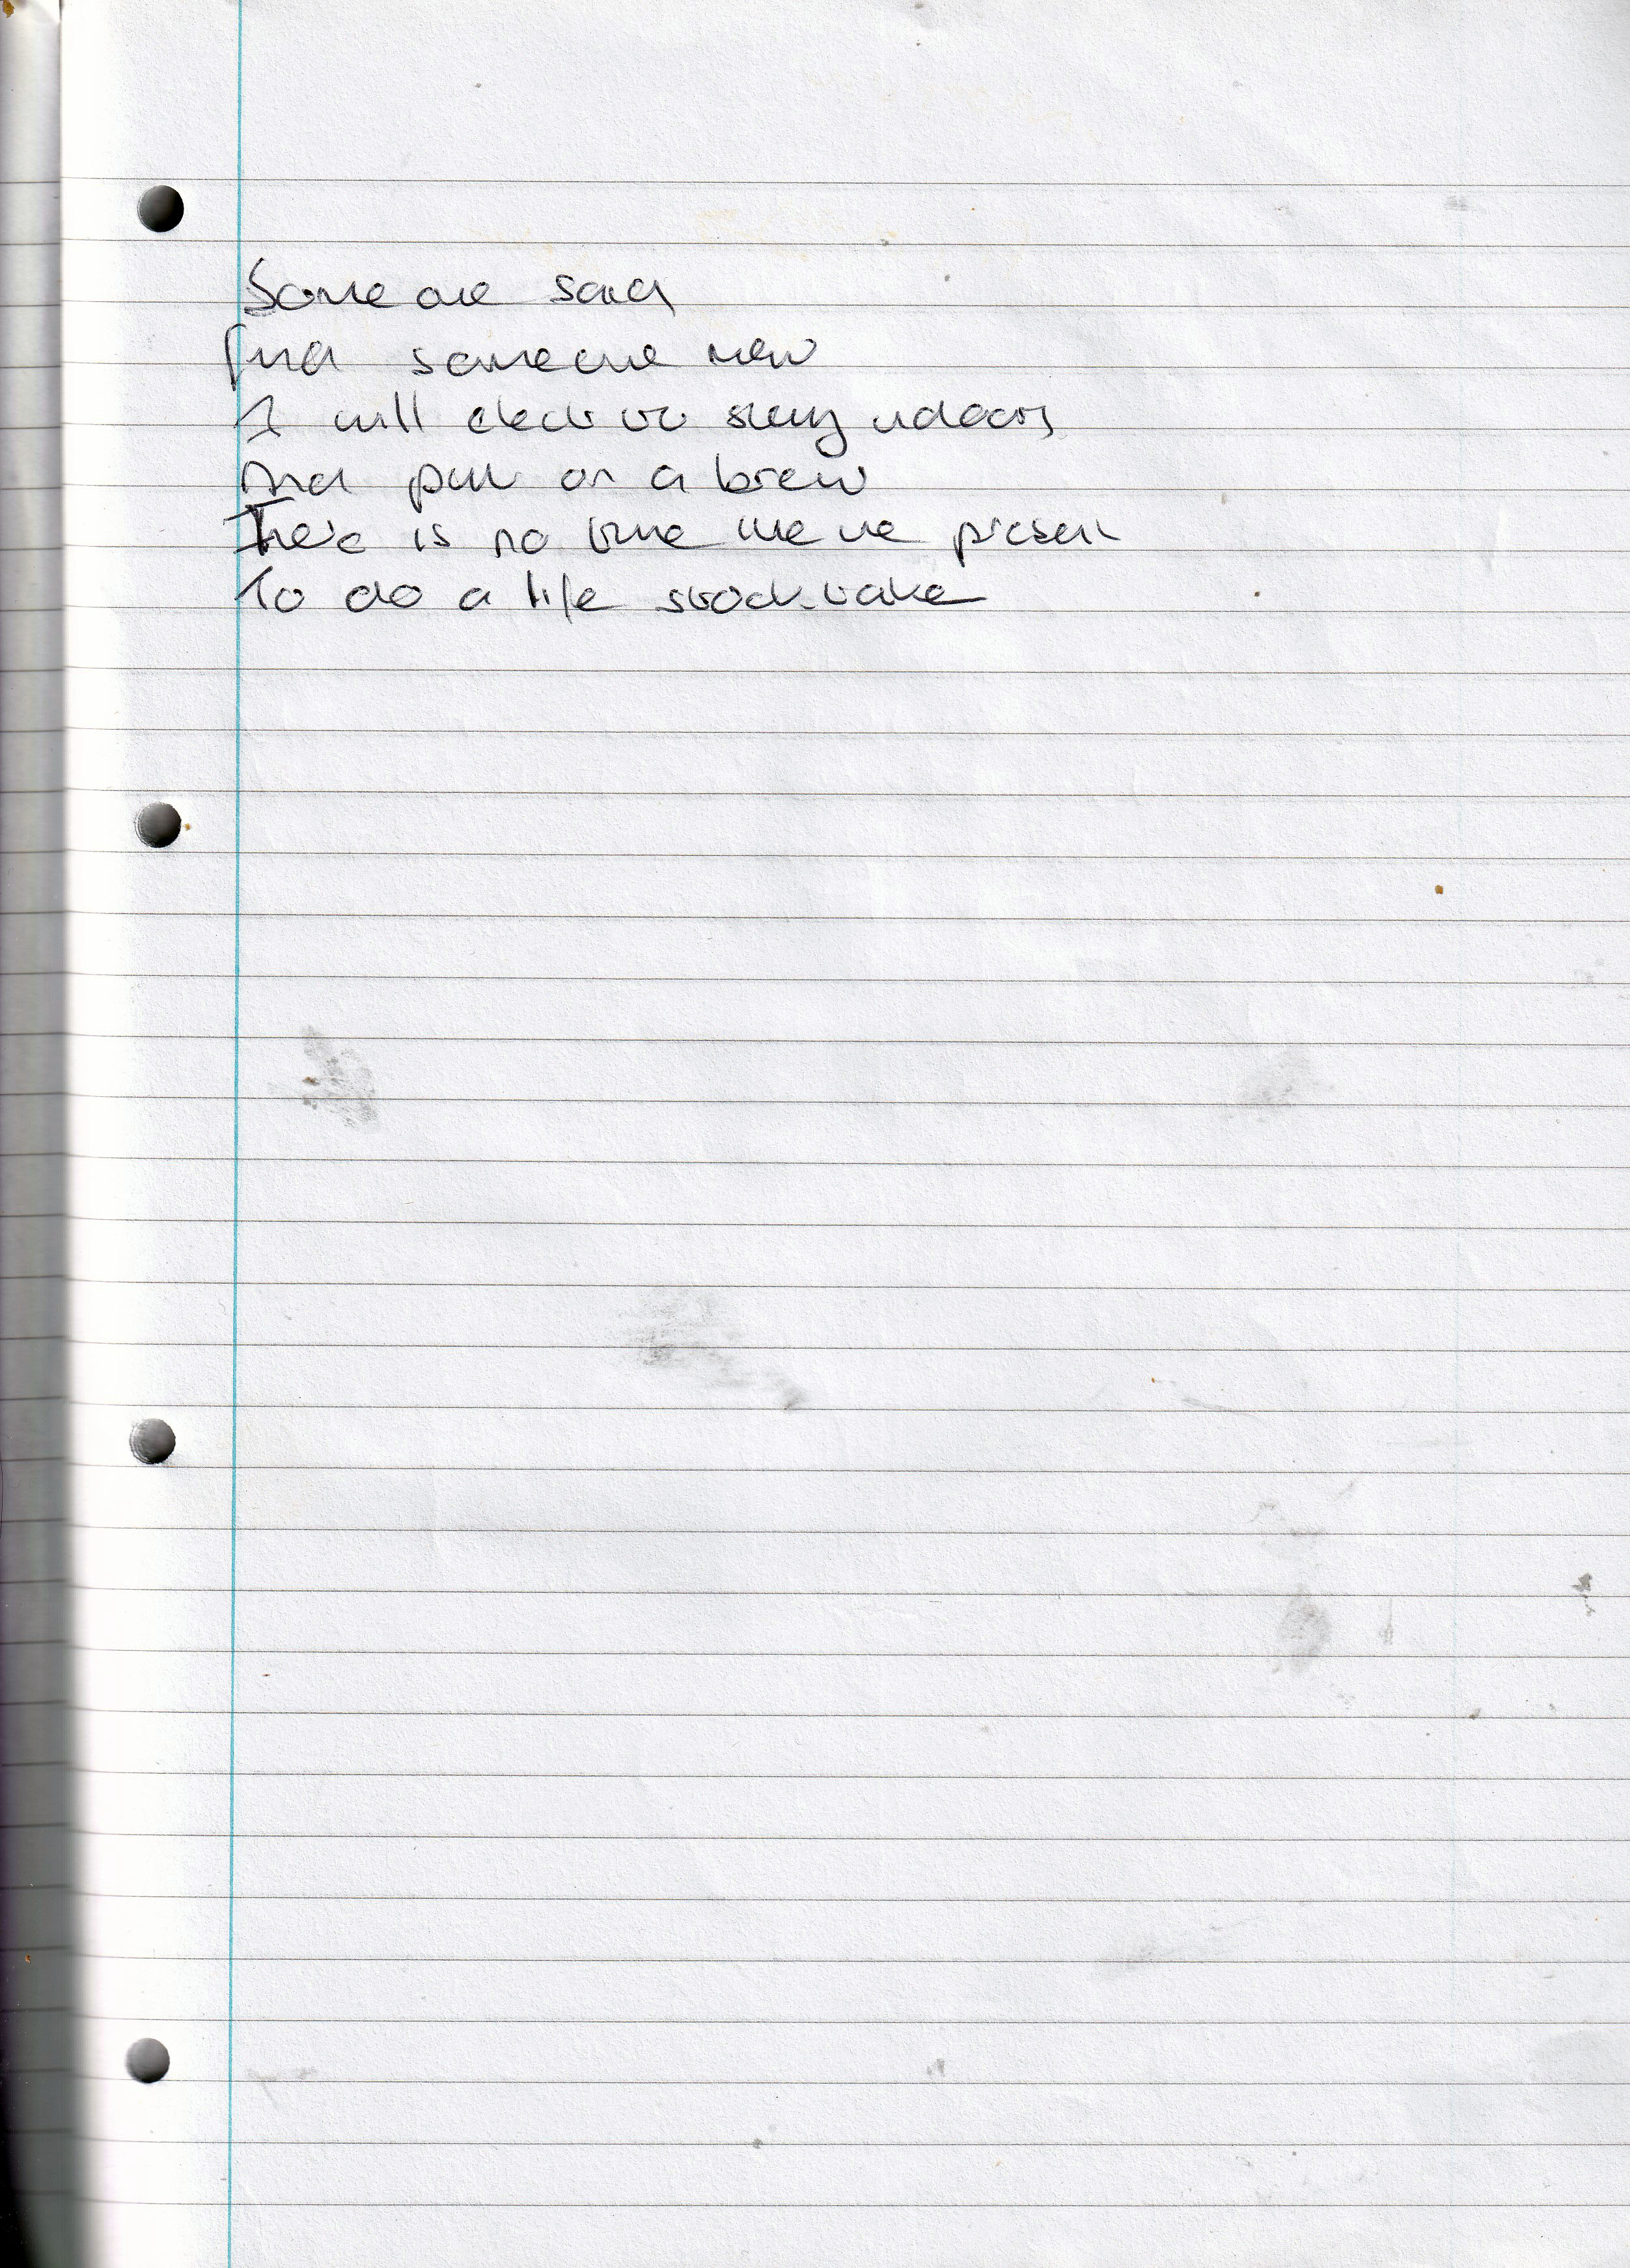 Someone said
find someone new
I will elect to stay indoors
And put on a brew
There is no time like the present
To do a life stock-take